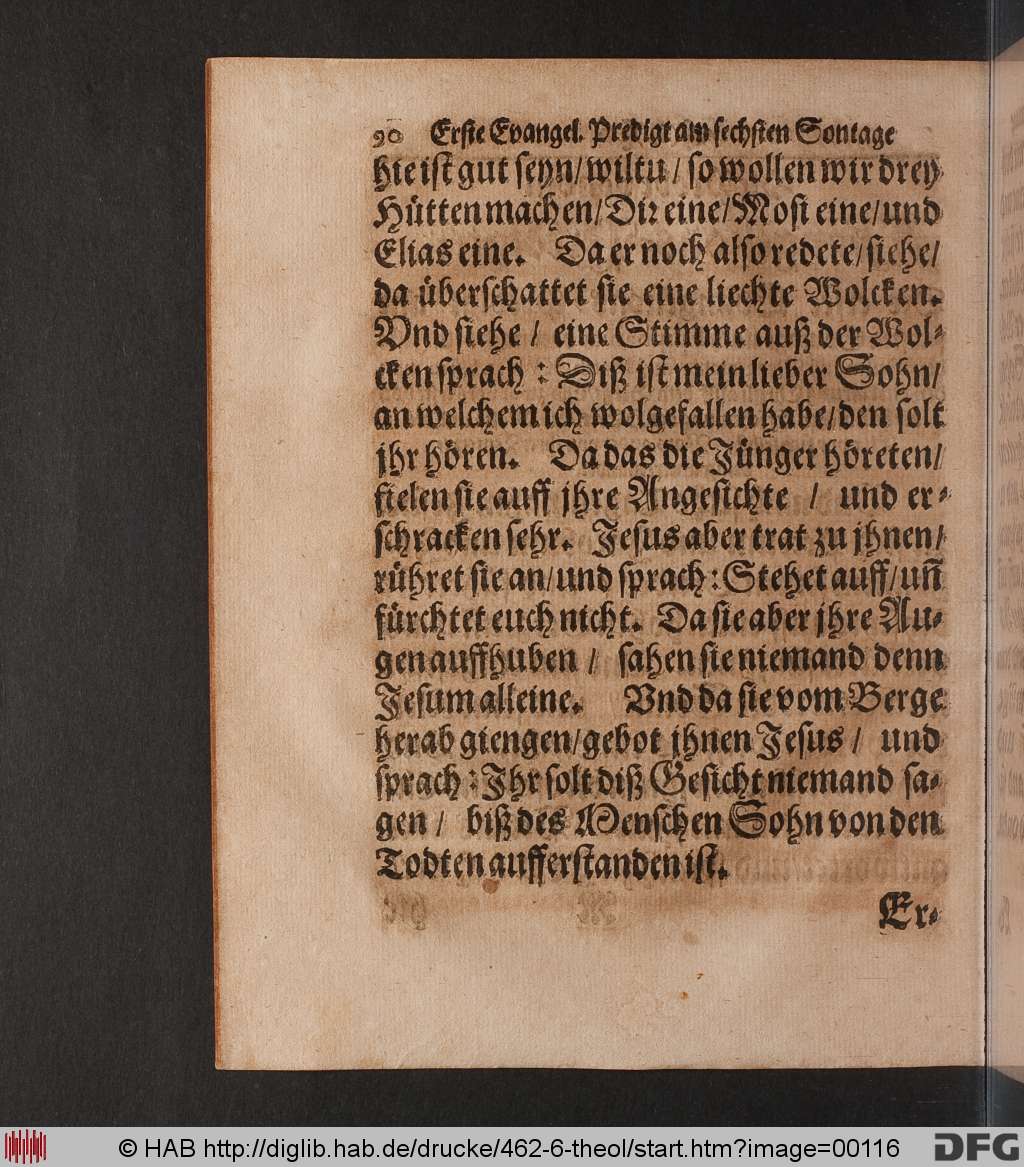 90 Erste Evangel. Predigt am sechsten Sontage
hie ist gut seyn/ wiltu / so wollen wir drey
Hütten machen/ Dir eine/ Mosi eine/ und
Elias eine. Da er noch also redete/ siehe/
da überschattet sie eine liechte Wolcken.
Vnd siehe / eine Stimme auß der Wol-
cken sprach : Diß ist mein lieber Sohn/
an welchem ich wolgefallen habe/ den solt
jhr hören. Da das die Jünger höreten/
fielen sie auff jhre Angesichte / und er-
schracken sehr. Jesus aber trat zu jhnen/
rühret sie an/ und sprach: Stehet auff/ uñ
fürchtet euch nicht. Da sie aber jhre Au-
gen auffhuben / sahen sie niemand denn
Jesum alleine. Vnd da sie vom Berge
herab giengen/ gebot jhnen Jesus / und
sprach : Jhr solt diß Gesicht niemand sa-
gen / biß des Menschen Sohn von den
Todten aufferstanden ist.
Er-
© HAB http://diglib.hab.de/drucke/462-6-theol/start.htm?image=00116
DFG